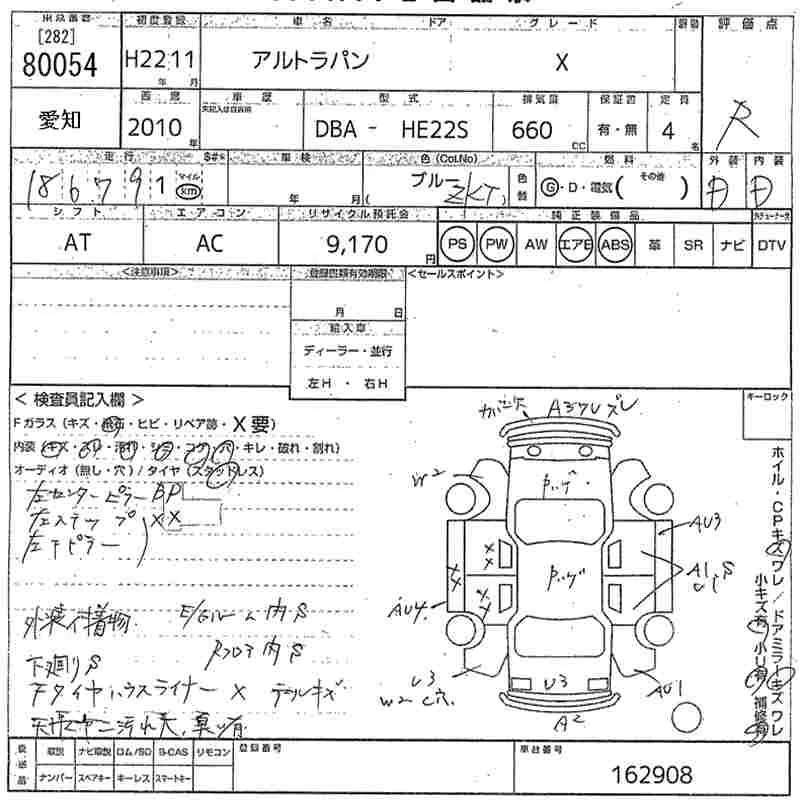 初度登録 車名 ドア グレード 評価点
[282]
80054 H22 11 アルトラパン X
年 月
愛知 車歴 型式 排気量 保証書 定員
2010 年 DBA - HE22S 660 cc 有・無 4 名 R
走行 車検 色(Col.No) 燃料 外装 内装
186791 マイル km 年 月 ブルー ZKT 色替 G・D・電気( その他 ) D D
シフト エアコン リサイクル預託金 純正装備品
AT AC 9,170 円 PS PW AW エアB ABS 革 SR ナビ DTV
<注意事項> 登録書類有効期限 <セールスポイント>
月 日
輸入車
ディーラー・並行
左H ・ 右H
< 検査員記入欄 > キーロック
Fガラス(キズ・飛石・ヒビ・リペア跡・X要)
内装(キズ・スレ・汚れ・シミ・コゲ・穴・キレ・破れ・割れ)
オーディオ(無し・穴)/タイヤ(スタッドレス)
左センターピラー BP
左ステップ XX
左Fピラー
外装付着物 E/Gルーム内S
下廻りS Rフロア内S
FタイヤハウスライナーX
カバー欠 A3 ズレ
W2
ハゲ
AU3
A1 S
U1
ハゲ
AU4
U3
W2 C穴
U3
AU1
A2
ホイル・CPキズワレ/ドアミラーキズワレ
小キズ有 小U有 補修有
取説 ナビ取説 ロム/SD B-CAS リモコン 登録番号 車台番号
ナンバー スペアキー キーレス スマートキー 162908